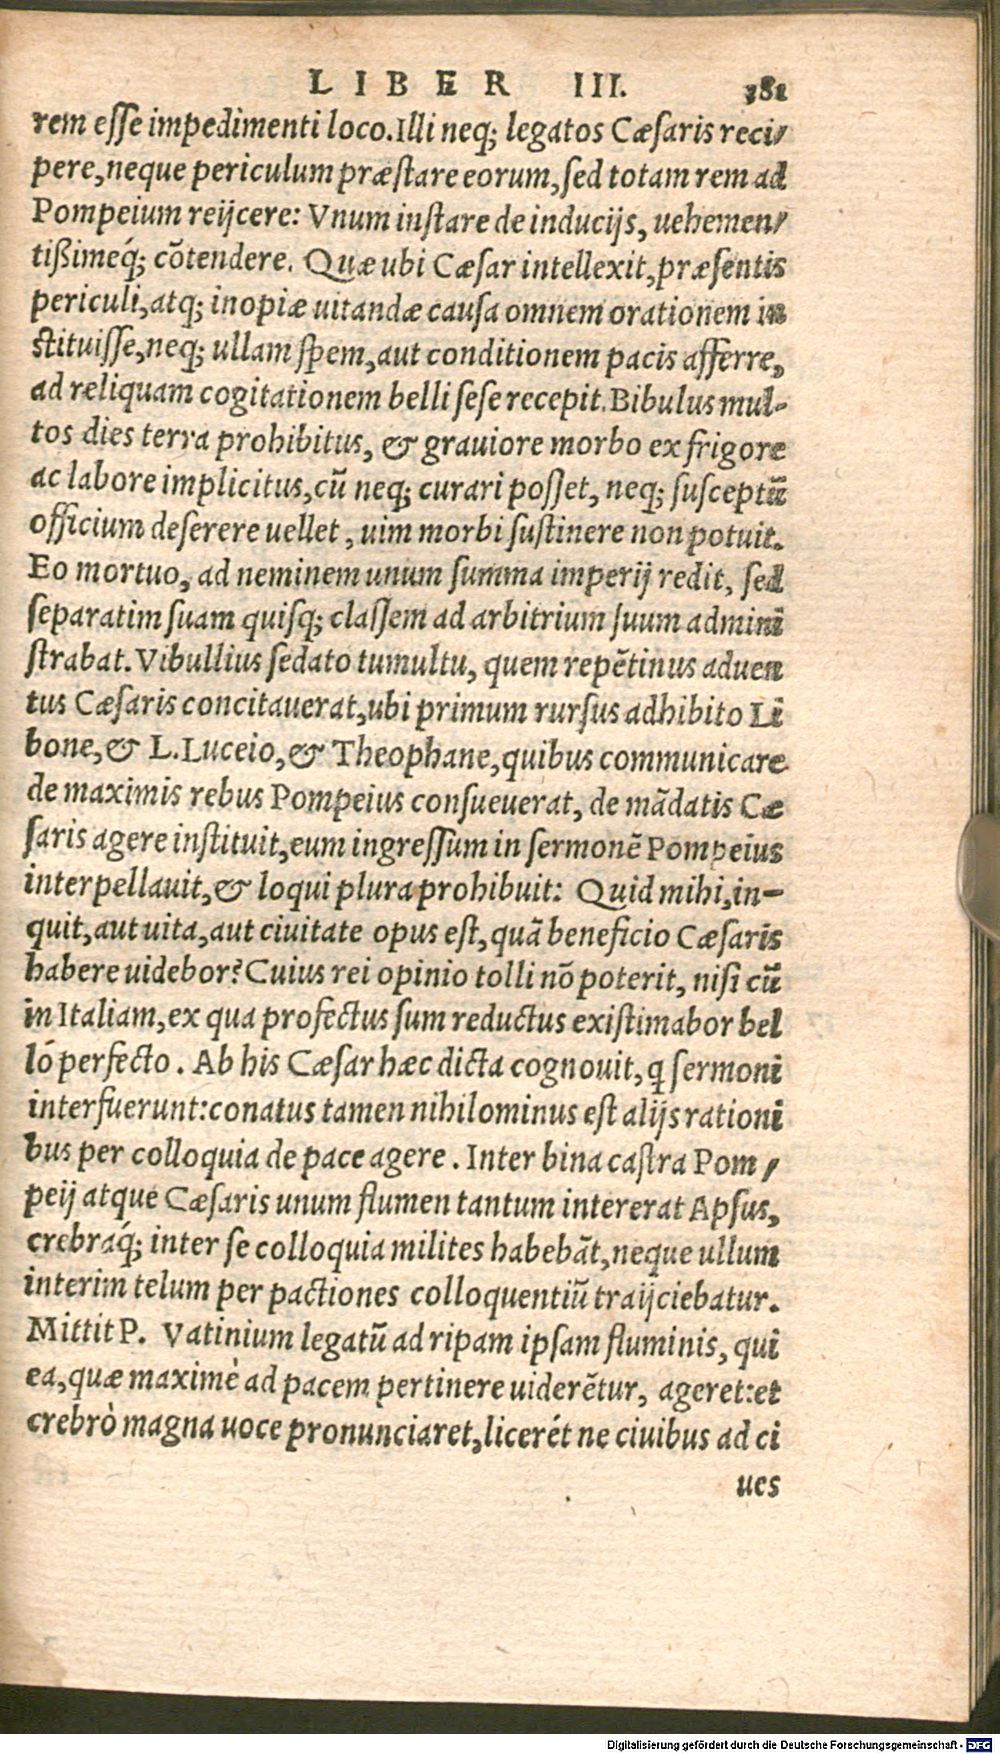 LIBER III. 381
rem esse impedimenti loco. Illi neq; legatos Cæsaris reci/
pere, neque periculum præstare eorum, sed totam rem ad
Pompeium reijcere: Vnum instare de inducijs, uehemen/
tißimeq́; cõtendere. Quæ ubi Cæsar intellexit, præsentis
periculi, atq; inopiæ uitandæ causa omnem orationem in
stituisse, neq; ullam spem, aut conditionem pacis afferre,
ad reliquam cogitationem belli sese recepit. Bibulus mul-
tos dies terra prohibitus, & grauiore morbo ex frigore
ac labore implicitus, cũ neq; curari posset, neq; susceptũ
officium deserere uellet, uim morbi sustinere non potuit.
Eo mortuo, ad neminem unum summa imperij redit, sed
separatim suam quisq; classem ad arbitrium suum admini
strabat. Vibullius sedato tumultu, quem repẽtinus aduen
tus Cæsaris concitauerat, ubi primum rursus adhibito Li
bone, & L. Luceio, & Theophane, quibus communicare
de maximis rebus Pompeius consueuerat, de mãdatis Cæ
saris agere instituit, eum ingressum in sermonẽ Pompeius
interpellauit, & loqui plura prohibuit: Quid mihi, in-
quit, aut uita, aut ciuitate opus est, quã beneficio Cæsaris
habere uidebor? Cuius rei opinio tolli nõ poterit, nisi cũ
in Italiam, ex qua profectus sum reductus existimabor bel
ló perfecto. Ab his Cæsar hæc dicta cognouit, q̃ sermoni
interfuerunt: conatus tamen nihilominus est alijs rationi
bus per colloquia de pace agere. Inter bina castra Pom/
peij atque Cæsaris unum flumen tantum intererat Apsus,
crebraq́; inter se colloquia milites habebãt, neque ullum
interim telum per pactiones colloquentiũ traijciebatur.
Mittit P. Vatinium legatũ ad ripam ipsam fluminis, qui
ea, quæ maximè ad pacem pertinere uiderẽtur, ageret: et
crebrò magna uoce pronunciaret, licerét ne ciuibus ad ci
ues
Digitalisierung gefördert durch die Deutsche Forschungsgemeinschaft - DFG